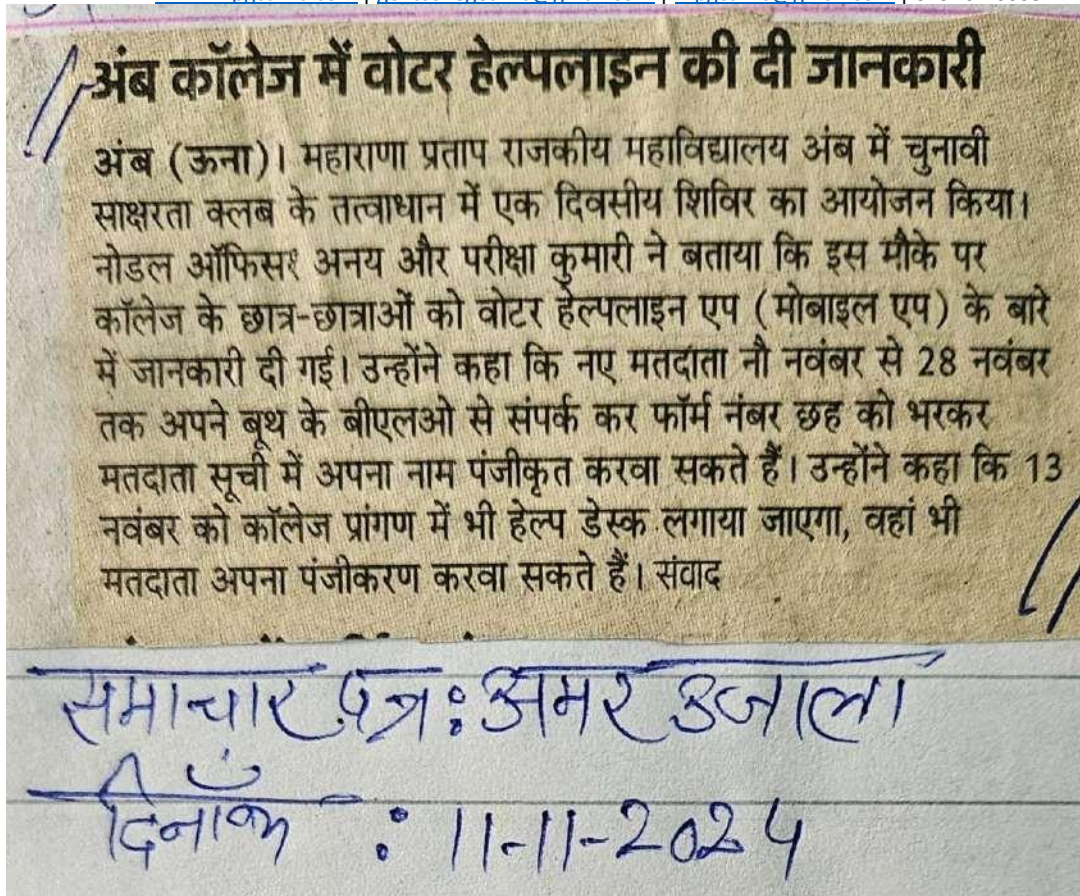 अंब कॉलेज में वोटर हेल्पलाइन की दी जानकारी
अंब (ऊना)। महाराणा प्रताप राजकीय महाविद्यालय अंब में चुनावी
साक्षरता क्लब के तत्वाधान में एक दिवसीय शिविर का आयोजन किया।
नोडल ऑफिसर अनय और परीक्षा कुमारी ने बताया कि इस मौके पर
कॉलेज के छात्र-छात्राओं को वोटर हेल्पलाइन एप (मोबाइल एप) के बारे
में जानकारी दी गई। उन्होंने कहा कि नए मतदाता नौ नवंबर से 28 नवंबर
तक अपने बूथ के बीएलओ से संपर्क कर फॉर्म नंबर छह को भरकर
मतदाता सूची में अपना नाम पंजीकृत करवा सकते हैं। उन्होंने कहा कि 13
नवंबर को कॉलेज प्रांगण में भी हेल्प डेस्क लगाया जाएगा, वहां भी
मतदाता अपना पंजीकरण करवा सकते हैं। संवाद
समाचार पत्र : अमर उजाला
दिनाँक : 11-11-2024